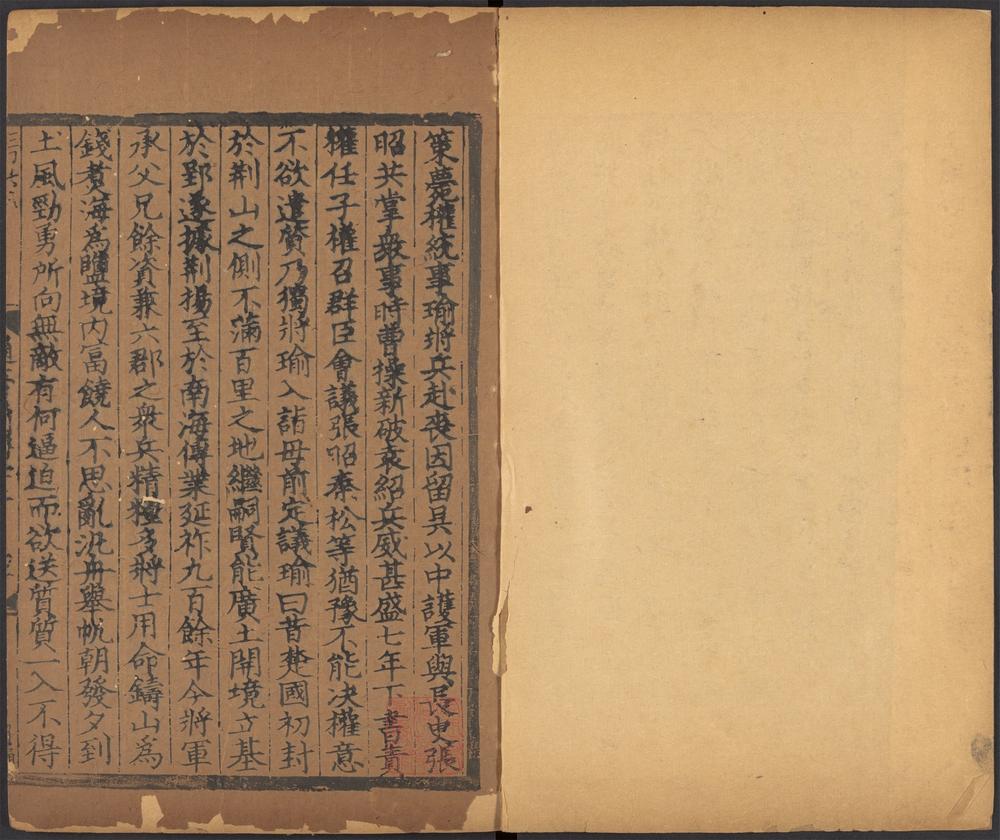 策薨權統事瑜將兵赴喪因留吳以中護軍與長史張
昭共掌衆事時曹操新破袁紹兵威甚盛七年下書責
權任子權召群臣會議張昭秦松等猶豫不能决權意
不欲遣質乃獨將瑜入詣母前定議瑜曰昔楚國初封
於荆山之側不滿百里之地繼嗣賢能廣土開境立基
於郢遂據荆揚至於南海傳業延祚九百餘年今將軍
承父兄餘資兼六郡之衆兵精糧多將士用命鑄山爲
錢煑海爲鹽境内富饒人不思亂汎舟舉帆朝發夕到
士風勁勇所向無敵有何逼迫而欲送質質一入不得